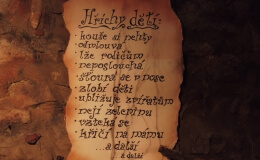 Hříchy dětí:
· kouše si nehty
· odmlouvá
· lže rodičům
· neposlouchá
· šťourá se v nose
· zlobí děti
· ubližuje zvířatům
· nejí zeleninu
· vzteká se
· křičí na mámu
...a další
a další